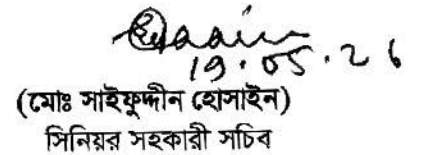 19.05.26
(মোঃ সাইফুদ্দীন হোসাইন)
সিনিয়র সহকারী সচিব